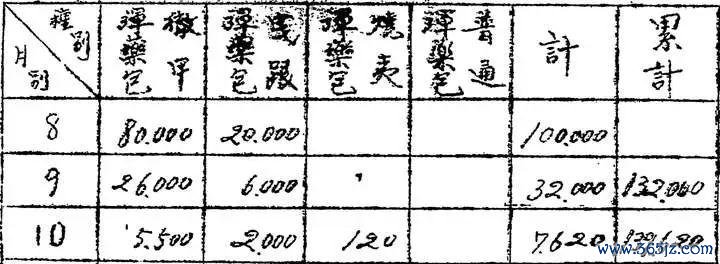 種別 月別 徹甲彈藥包 曳跟彈藥包 燒夷彈藥包 普通彈藥包 計 累計
8 80.000 20.000 100.000
9 26.000 6.000 32.000 132.000
10 5.500 2.000 120 7.620
www.365jz.com